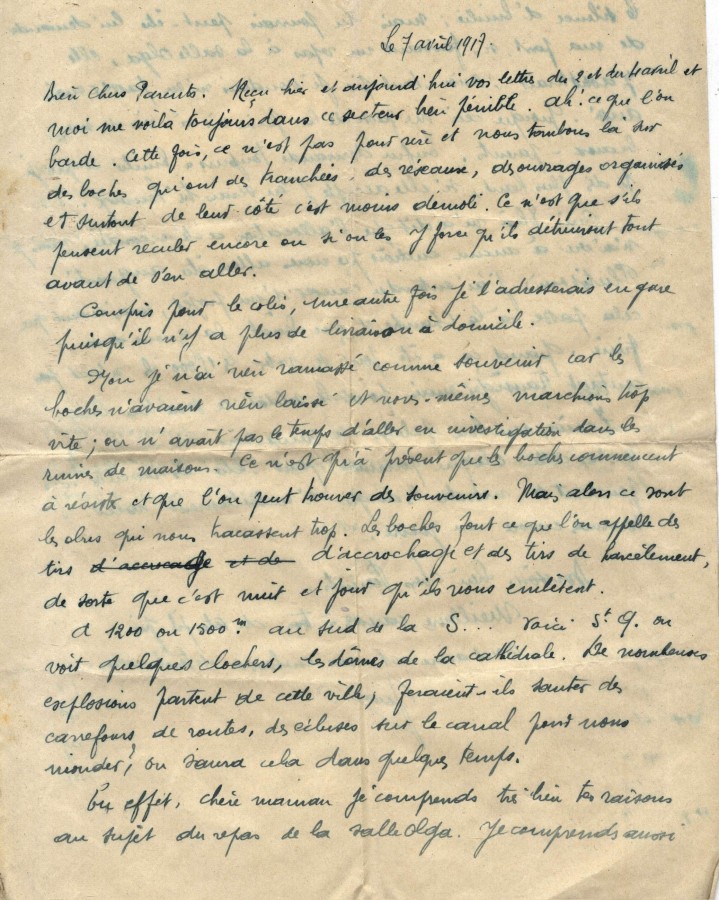 Le 7 avril 1917
Bien chers Parents. Reçu hier et aujourd'hui vos lettres du 2 et du 4 avril et
moi me voilà toujours dans ce secteur bien pénible. Ah! ce que l'on
barde. Cette fois, ce n'est pas pour rire et nous tombons là sur
des boches qui ont des tranchées, des réseaux, des ouvrages organisés
et surtout de leur côté c'est moins démoli. Ce n'est que s'ils
pensent reculer encore ou si on les y force qu'ils détruiront tout
avant de s'en aller.
Compris pour le colis, une autre fois je l'adresserais en gare
puisqu'il n'y a plus de livraison à domicile.
Non je n'ai rien ramassé comme souvenir car les
boches n'avaient rien laissé et nous-mêmes marchions trop
vite; on n'avait pas le temps d'aller en investigation dans les
ruines de maisons. Ce n'est qu'à présent que les boches commencent
à résister et que l'on peut trouver des souvenirs. Mais alors ce sont
les obus qui nous tracassent trop. Les boches font ce que l'on appelle des
tirs d'accrocage et de d'accrochage et des tirs de harcèlement,
de sorte que c'est nuit et jour qu'ils nous embêtent.
A 1200 ou 1500m. au sud de la S... voici St Q. on
voit quelques clochers, les dômes de la cathédrale. De nombreuses
explosions partent de cette ville, feraient-ils sauter des
carrefours de routes, des écluses sur le canal pour nous
inonder, on saura cela dans quelques temps.
En effet, chère maman je comprends très bien tes raisons
au sujet du repas de la salle Olga. Je comprends aussi